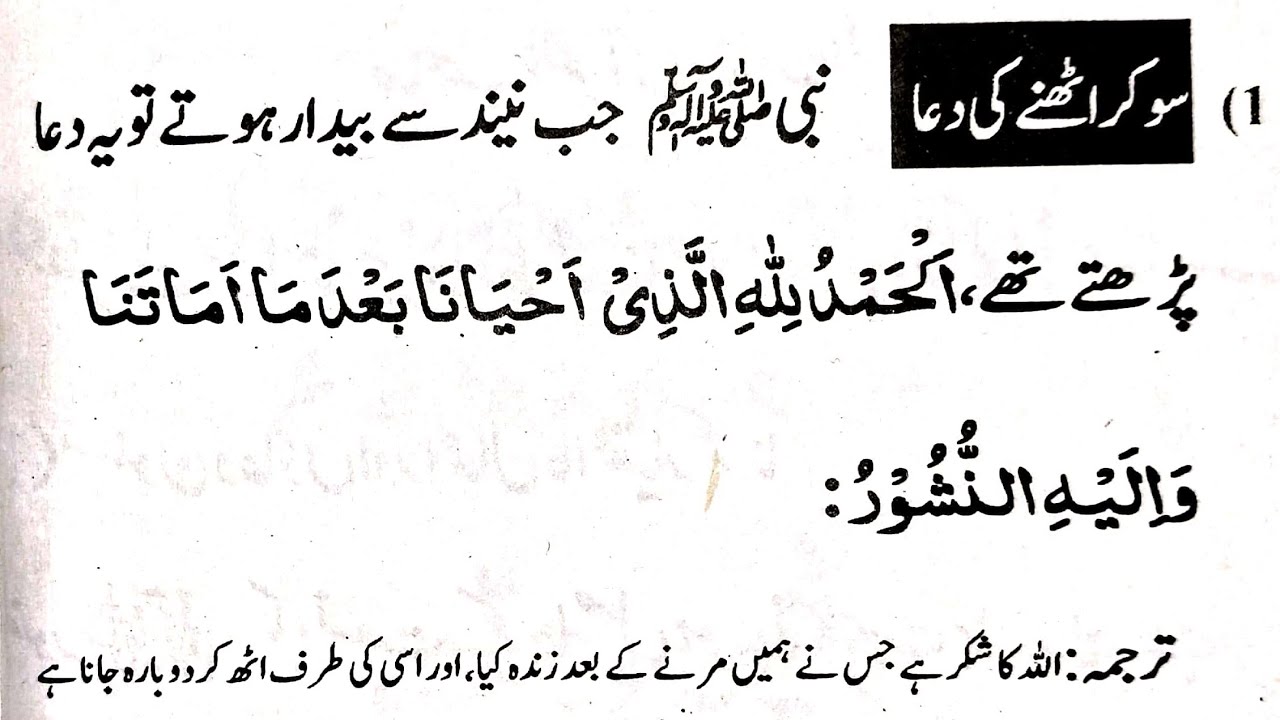 1) سوکر اٹھنے کی دعا نبی ﷺ جب نیند سے بیدار ہوتے تو یہ دعا
پڑھتے تھے، اَلْحَمْدُ لِلّٰهِ الَّذِیْ اَحْیَانَا بَعْدَ مَا اَمَاتَنَا
وَاِلَیْهِ النُّشُوْرُ:
ترجمہ: اللہ کا شکر ہے جس نے ہمیں مرنے کے بعد زندہ کیا، اور اسی کی طرف اٹھ کر دوبارہ جانا ہے